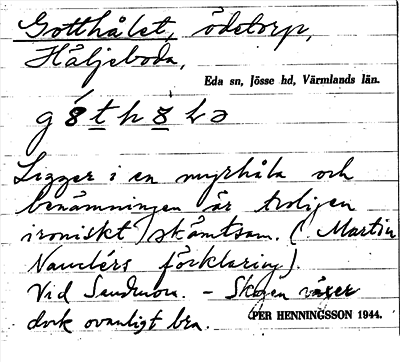 Gotthålet, ödetorp,
Häljeboda,
Eda sn, Jösse hd, Värmlands län.
Ligger i en myrhåla och
benämningen är troligen
ironiskt skämtsam. (Martin
förklaring).
Vid Sandmon. - Skogen växer
dock ovanligt bra.
PER HENNINGSSON 1944.